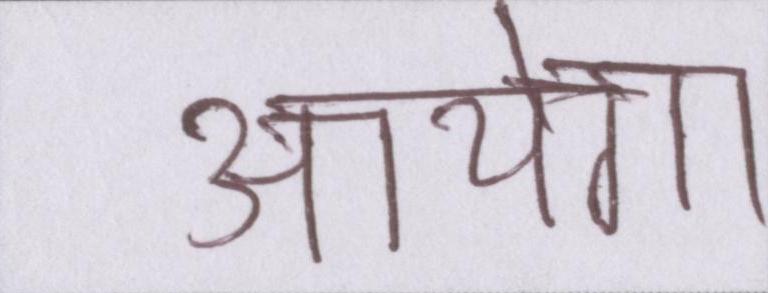 आयेगा